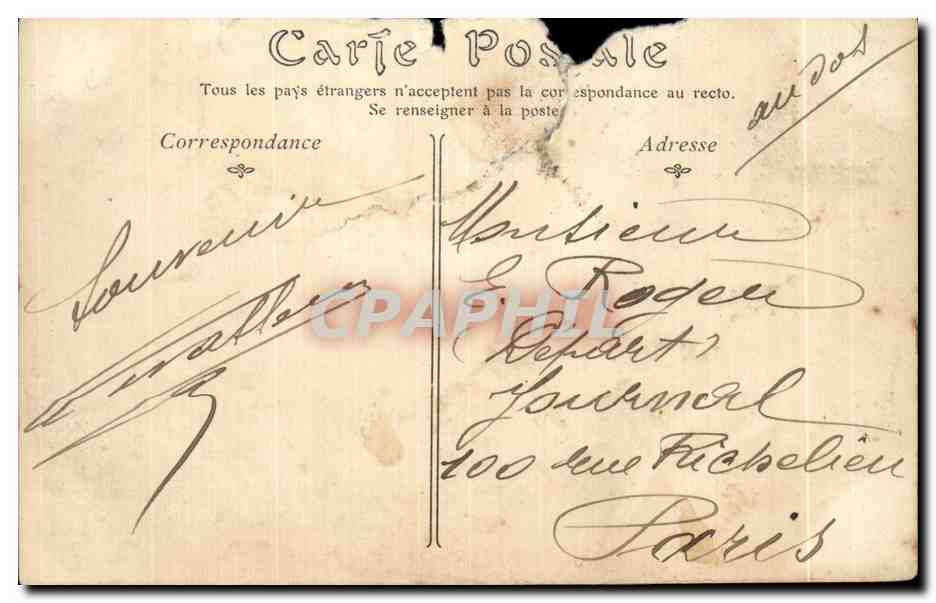 Carte Postale
Tous les pays étrangers n'acceptent pas la correspondance au recto.
Se renseigner à la poste
Correspondance
Adresse
au dos
Souvenir
Monsieur
E. Roger
(Départ)
Journal
100 rue Richelieu
Paris
CPAPHIL